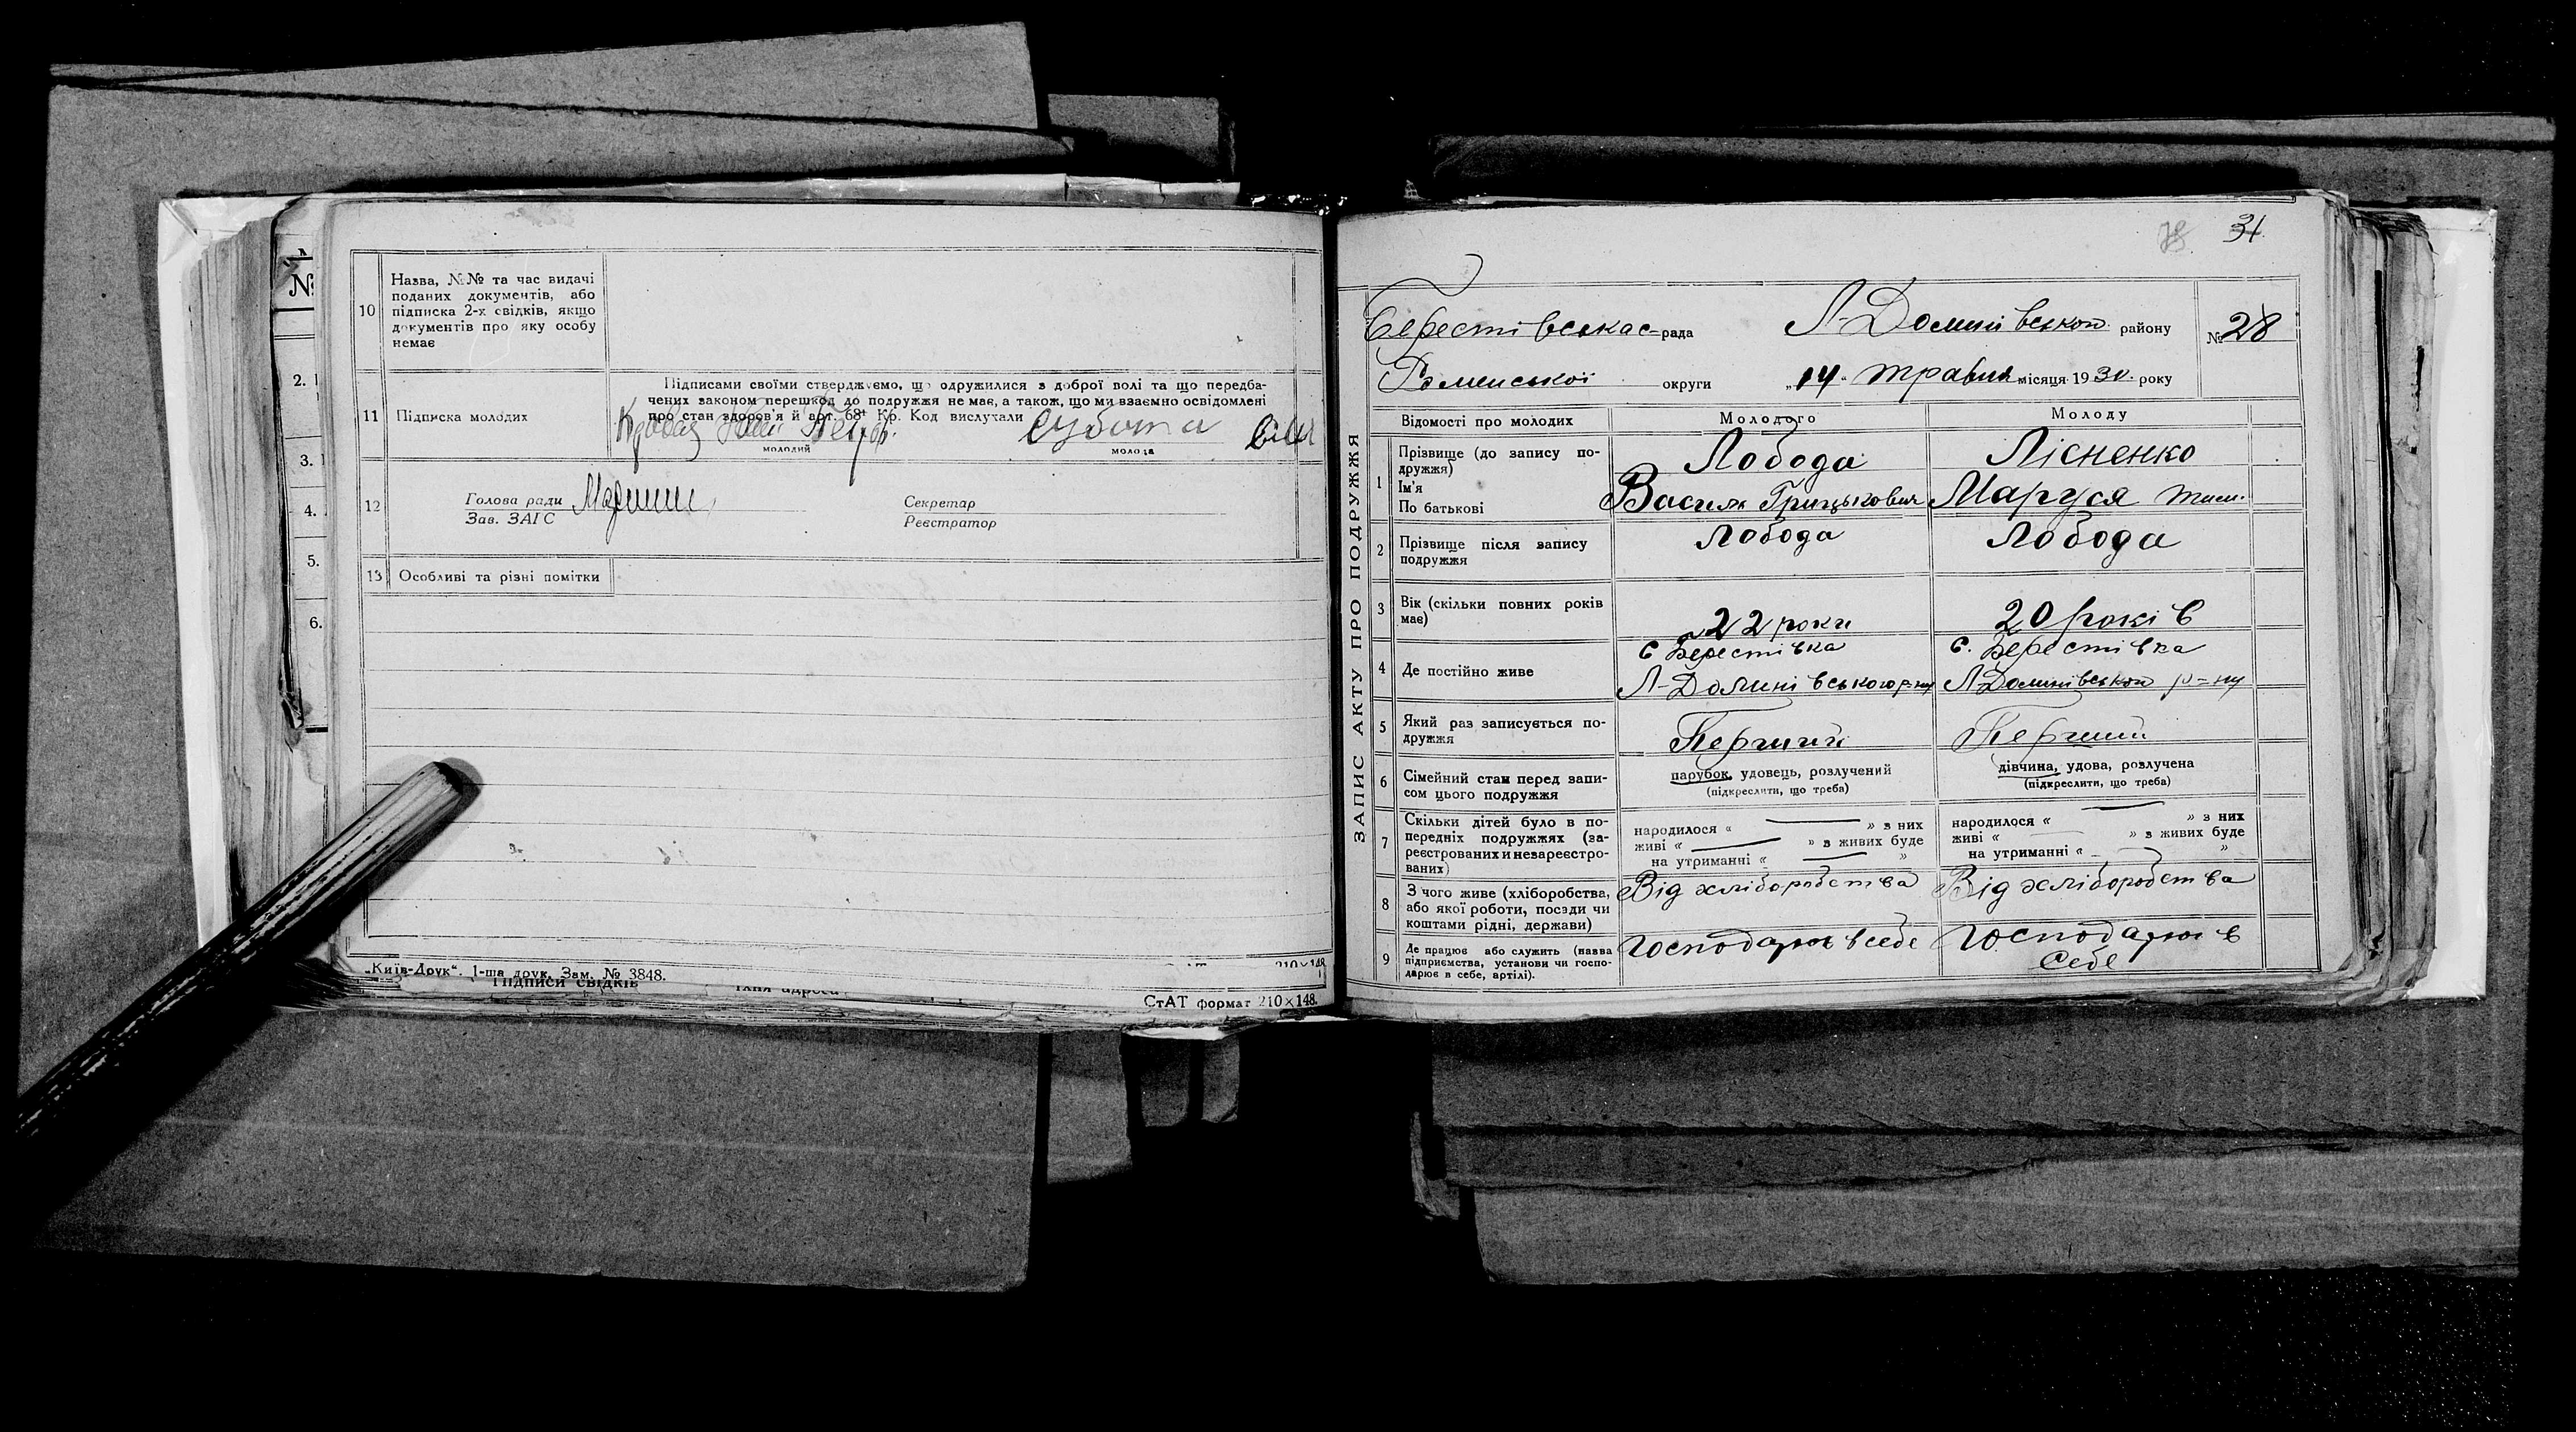 №
2.
3.
4.
5.
6.
10 Назва, №№ та час видачі
поданих документів, або
підписка 2-х свідків, якщо
документів про яку особу
немає
Підписами своїми стверджуємо, що одружилися з доброї волі та що передба-
чених законом перешкод до подружжя немає, а також, що ми взаємно освідомлені
про стан здоров'я й арт. 68¹ Кр. Код вислухали
11 Підписка молодих
Субота
молодий молода
12 Голова ради Секретар
Зав. ЗАГС Реєстратор
13 Особливі та різні помітки
„Київ-Друк“. 1-ша друк. Зам. № 3848.
Підписи свідків їхня адреса
210×148
СтАТ формат 210×148.
31
ЗАПИС АКТУ ПРО ПОДРУЖЖЯ
Берестівська с-рада Л-Долинівського району № 28
Роменської округи „14“ травня місяця 1930 року
Відомості про молодих Молодого Молоду
1 Прізвище (до запису по-
дружжя) Лобода Лісненко
Ім'я
По батькові Василь Грицькович Маруся Тим.
2 Прізвище після запису
подружжя Лобода Лобода
3 Вік (скільки повних років
має) 22 роки 20 років
4 Де постійно живе с Берестівка с. Берестівка
Л-Долинівського р-ну Л-Долинівського р-ну
5 Який раз записується по-
дружжя Перший Перший
6 Сімейний стан перед запи-
сом цього подружжя
парубок, удовець, розлучений дівчина, удова, розлучена
(підкреслити, що треба) (підкреслити, що треба)
7 Скільки дітей було в по-
передніх подружжях (за-
реєстрованих и незареєстро-
ваних)
народилося « » з них народилося « » з них
живі « » з живих буде живі « » з живих буде
на утриманні « » на утриманні « »
8 З чого живе (хліборобства,
або якої роботи, посади чи
коштами рідні, держави)
Від хліборобства Від хліборобства
9 Де працює або служить (назва
підприємства, установи чи госпо-
дарює в себе, артілі).
Господарює в себе Господарює в
себе